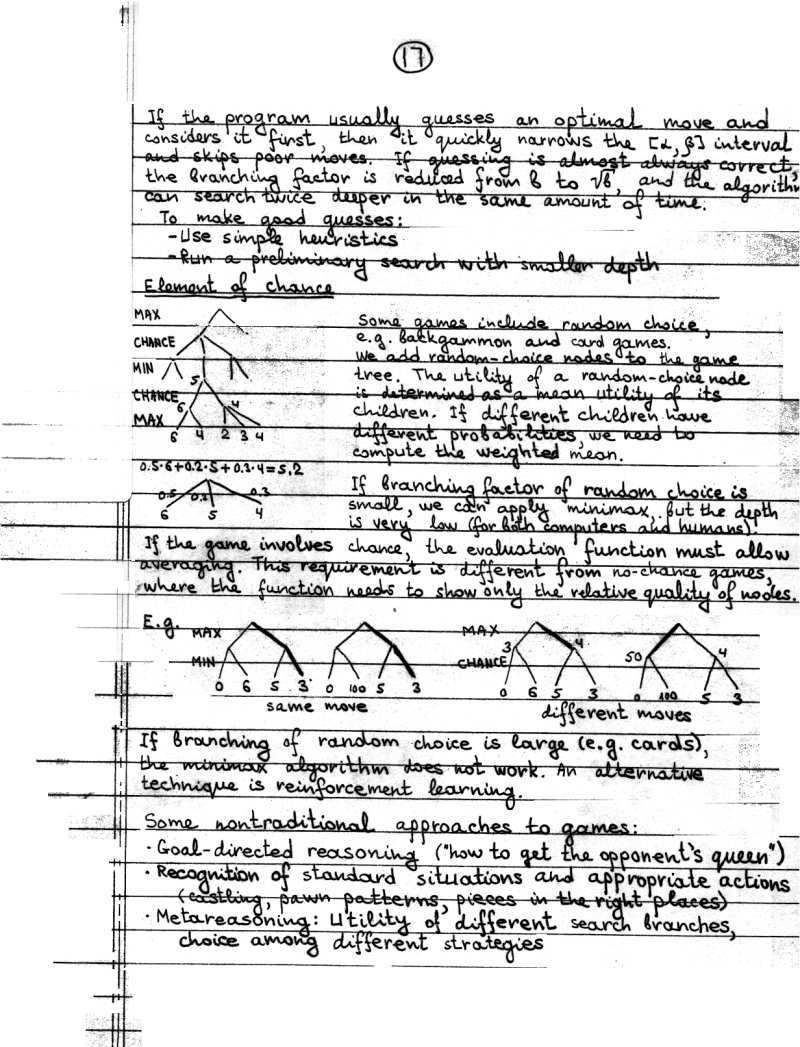 17
If the program usually guesses an optimal move and
considers it first, then it quickly narrows the [α, β] interval
and skips poor moves. If guessing is almost always correct,
the branching factor is reduced from b to √b, and the algorithm
can search twice deeper in the same amount of time.
To make good guesses:
-Use simple heuristics
-Run a preliminary search with smaller depth
Element of chance
MAX
CHANCE
MIN
5
CHANCE
6 4
MAX
6 4 2 3 4
0.5·6+0.2·5+0.3·4=5.2
0.5 0.2 0.3
6 5 4
Some games include random choice,
e.g. backgammon and card games.
We add random-choice nodes to the game
tree. The utility of a random-choice node
is determined as a mean utility of its
children. If different children have
different probabilities, we need to
compute the weighted mean.
If branching factor of random choice is
small, we can apply minimax, but the depth
is very low (for both computers and humans).
If the game involves chance, the evaluation function must allow
averaging. This requirement is different from no-chance games,
where the function needs to show only the relative quality of nodes.
E.g.
MAX
MIN
0 6 5 3 0 100 5 3
same move
MAX
3 4 50 4
CHANCE
0 6 5 3 0 100 5 3
different moves
If branching of random choice is large (e.g. cards),
the minimax algorithm does not work. An alternative
technique is reinforcement learning.
Some nontraditional approaches to games:
· Goal-directed reasoning ("how to get the opponent's queen")
· Recognition of standard situations and appropriate actions
(castling, pawn patterns, pieces in the right places)
· Metareasoning: Utility of different search branches,
choice among different strategies